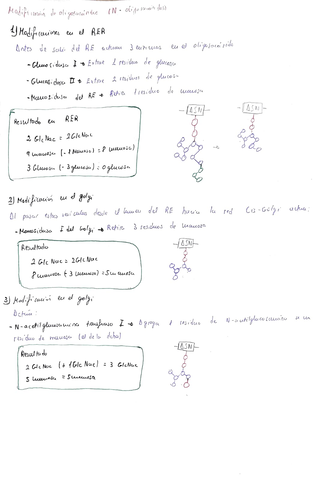 Modificación de oligosacárido (N-oligosacárido)
1) Modificaciones en el RER
Antes de salir del RE actúan 3 enzimas en el oligosacárido
- Glucosidasa I → Extrae 1 residuo de glucosa
- Glucosidasa II → Extrae 2 residuos de glucosa
- Manosidasa del RE → Retira 1 residuo de manosa
ASN
ASN
Resultado en RER
2 GlcNac = 2GlcNac
9 manosa (-1 Manosa) = 8 manosa
3 Glucosa (-3 glucosa) = 0 glucosa
2) Modificación en el golgi
Al pasar estas vesículas desde el lumen del RE hacia la red Cis-Golgi actúa:
- Manosidasa I del Golgi → Retira 3 residuos de manosa
ASN
Resultado
2 GlcNac = 2GlcNac
8 manosa (-3 manosa) = 5 manosa
3) Modificación en el golgi
Actúa:
- N-acetilglucosamina transferasa I → Agrega 1 residuo de N-acetilglucosamina a un
residuo de manosa
ASN
Resultado
2 GlcNac (+1GlcNac) = 3 GlcNac
5 manosa = 5 manosa